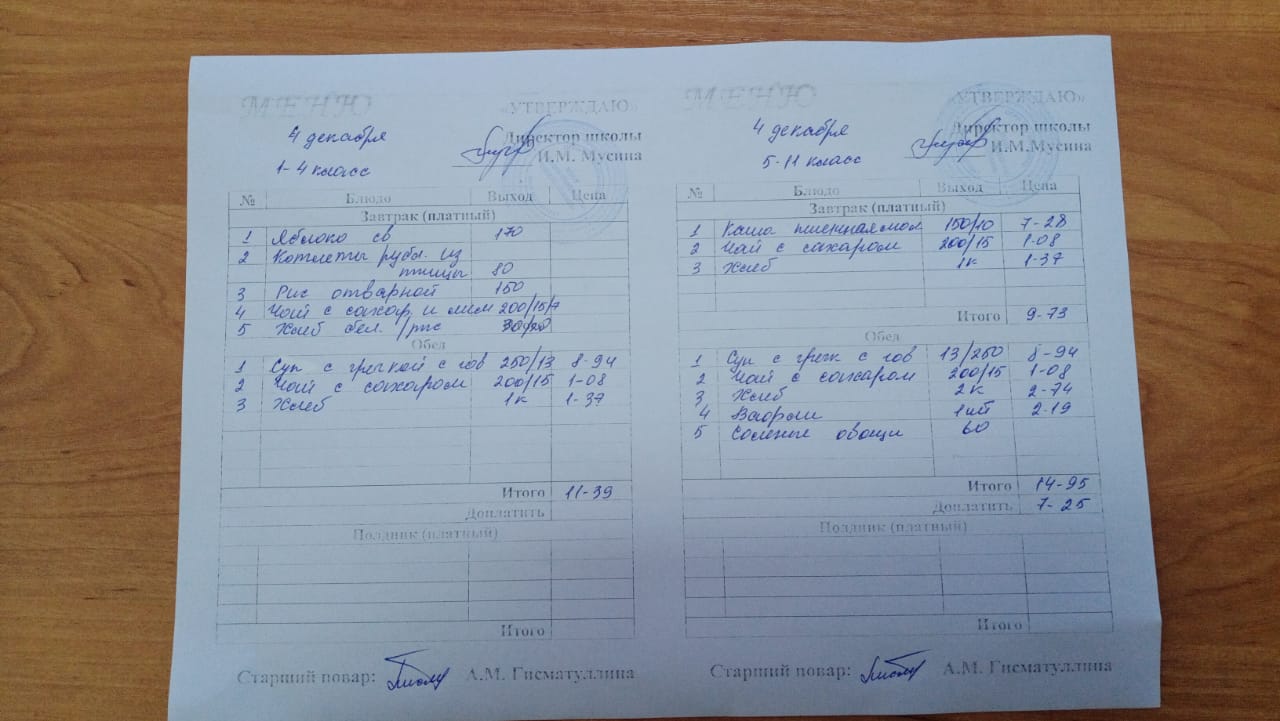 МЕНЮ «УТВЕРЖДАЮ»
4 декабря Директор школы
И.М. Мусина
1-4 класс
№ Блюдо Выход Цена
Завтрак (платный)
1 Яблоко св 170
2 Котлеты рубл. из
птицы 80
3 Рис отварной 150
4 Чай с сахар. и лим 200/15/7
5 Хлеб бел. /рж
Обед
1 Суп с гречкой с гов 250/13 8-94
2 Чай с сахаром 200/15 1-08
3 Хлеб 1к 1-37
Итого 11-39
Доплатить
Полдник (платный)
Итого
Старший повар: А.М. Гисматуллина
МЕНЮ «УТВЕРЖДАЮ»
4 декабря Директор школы
И.М.Мусина
5-11 класс
№ Блюдо Выход Цена
Завтрак (платный)
1 Каша пшенная мол 150/10 7-28
2 Чай с сахаром 200/15 1-08
3 Хлеб 1к 1-37
Итого 9-73
Обед
1 Суп с греч с гов 13/250 8-94
2 Чай с сахаром 200/15 1-08
3 Хлеб 2к 2-74
4 Вафли 1шт 2-19
5 Соленые овощи 60
Итого 14-95
Доплатить 7-25
Полдник (платный)
Итого
Старший повар: А.М. Гисматуллина